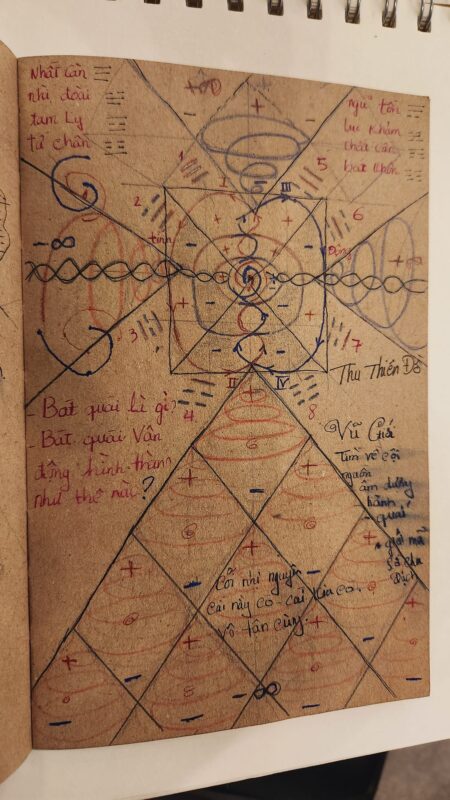 Nhất Càn
nhì đoài
tam Ly
tứ chấn
ngũ tốn
lục khảm
thất cấn
bát khôn
+∞
+
-
1
2
3
4
5
6
7
8
I
II
III
IV
-∞
+∞
tĩnh
Động
Thu Thiên Đồ
- Bát quái là gì?
- Bát quái Vận
động hình thành
như thế nào?
Tìm về cội
nguồn
âm dương
hành
quái
giải mã
Cõi nhị nguyên
cái này có - cái kia có.
Vô tận cùng.
-∞